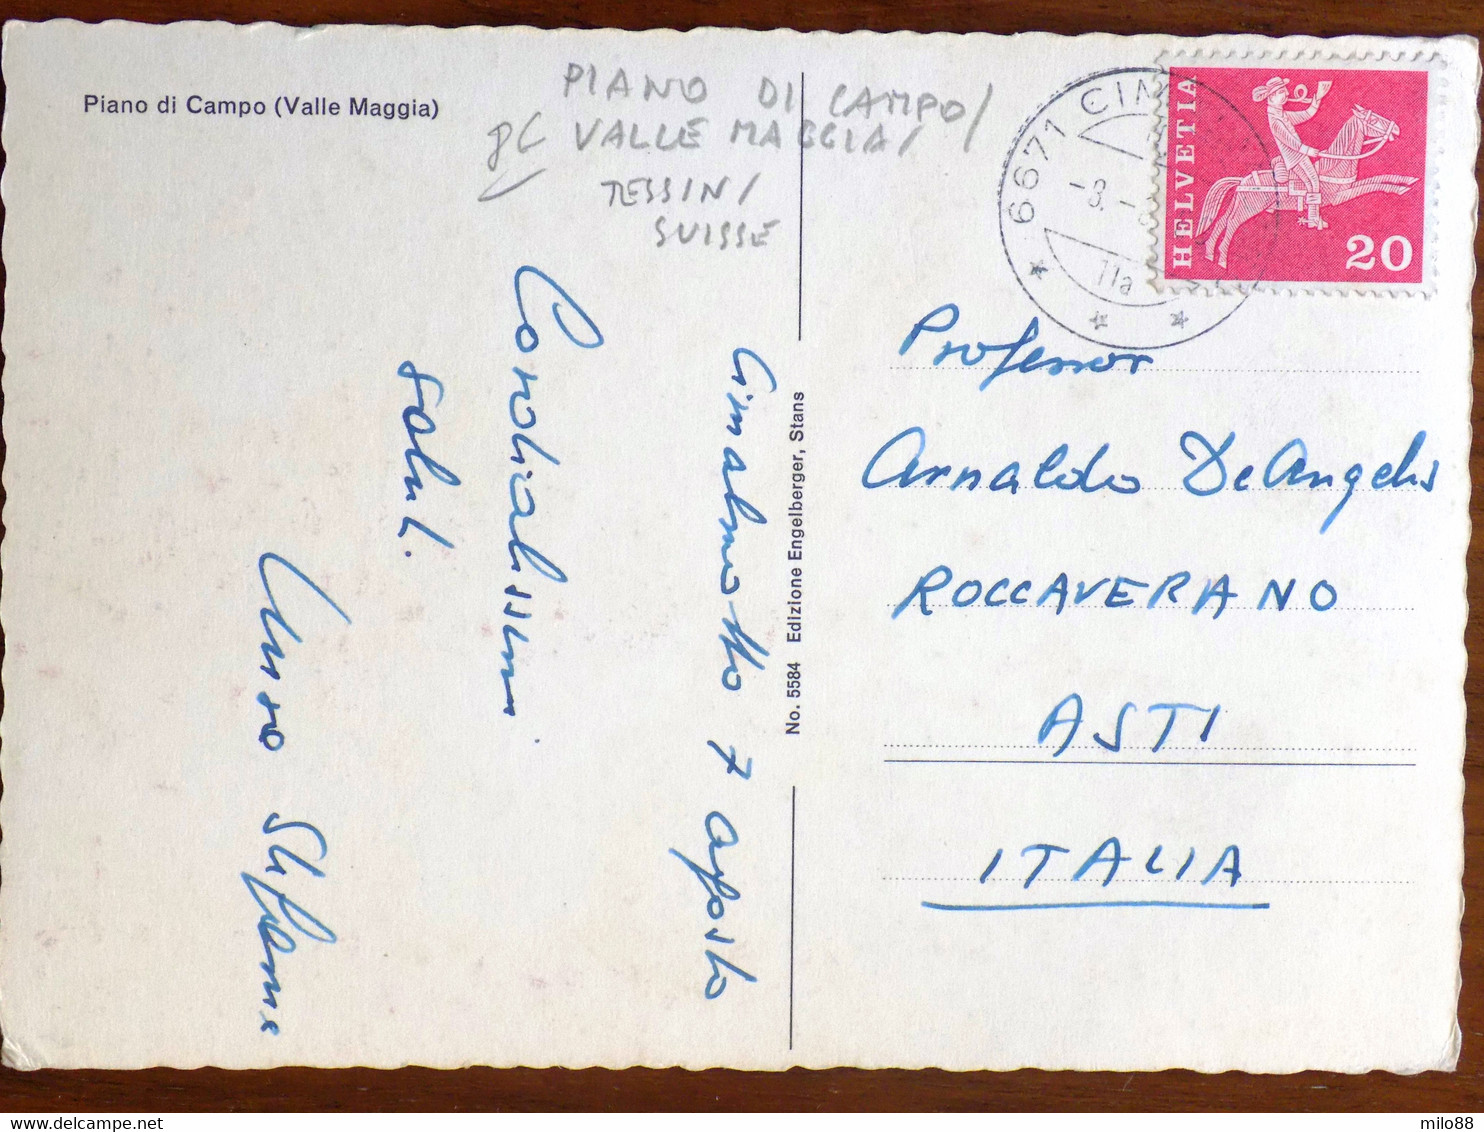 Piano di Campo (Valle Maggia)
PIANO DI CAMPO/
VALLE MAGGIA/
TESSIN/
SUISSE
6671 CIM
-8.-8
TIa
HELVETIA
20
Cimalmotto 7 agosto
Cordialissimi
saluti.
No. 5584 Edizione Engelberger, Stans
Professor
Arnaldo De Angelis
ROCCAVERANO
ASTI
ITALIA
milo88